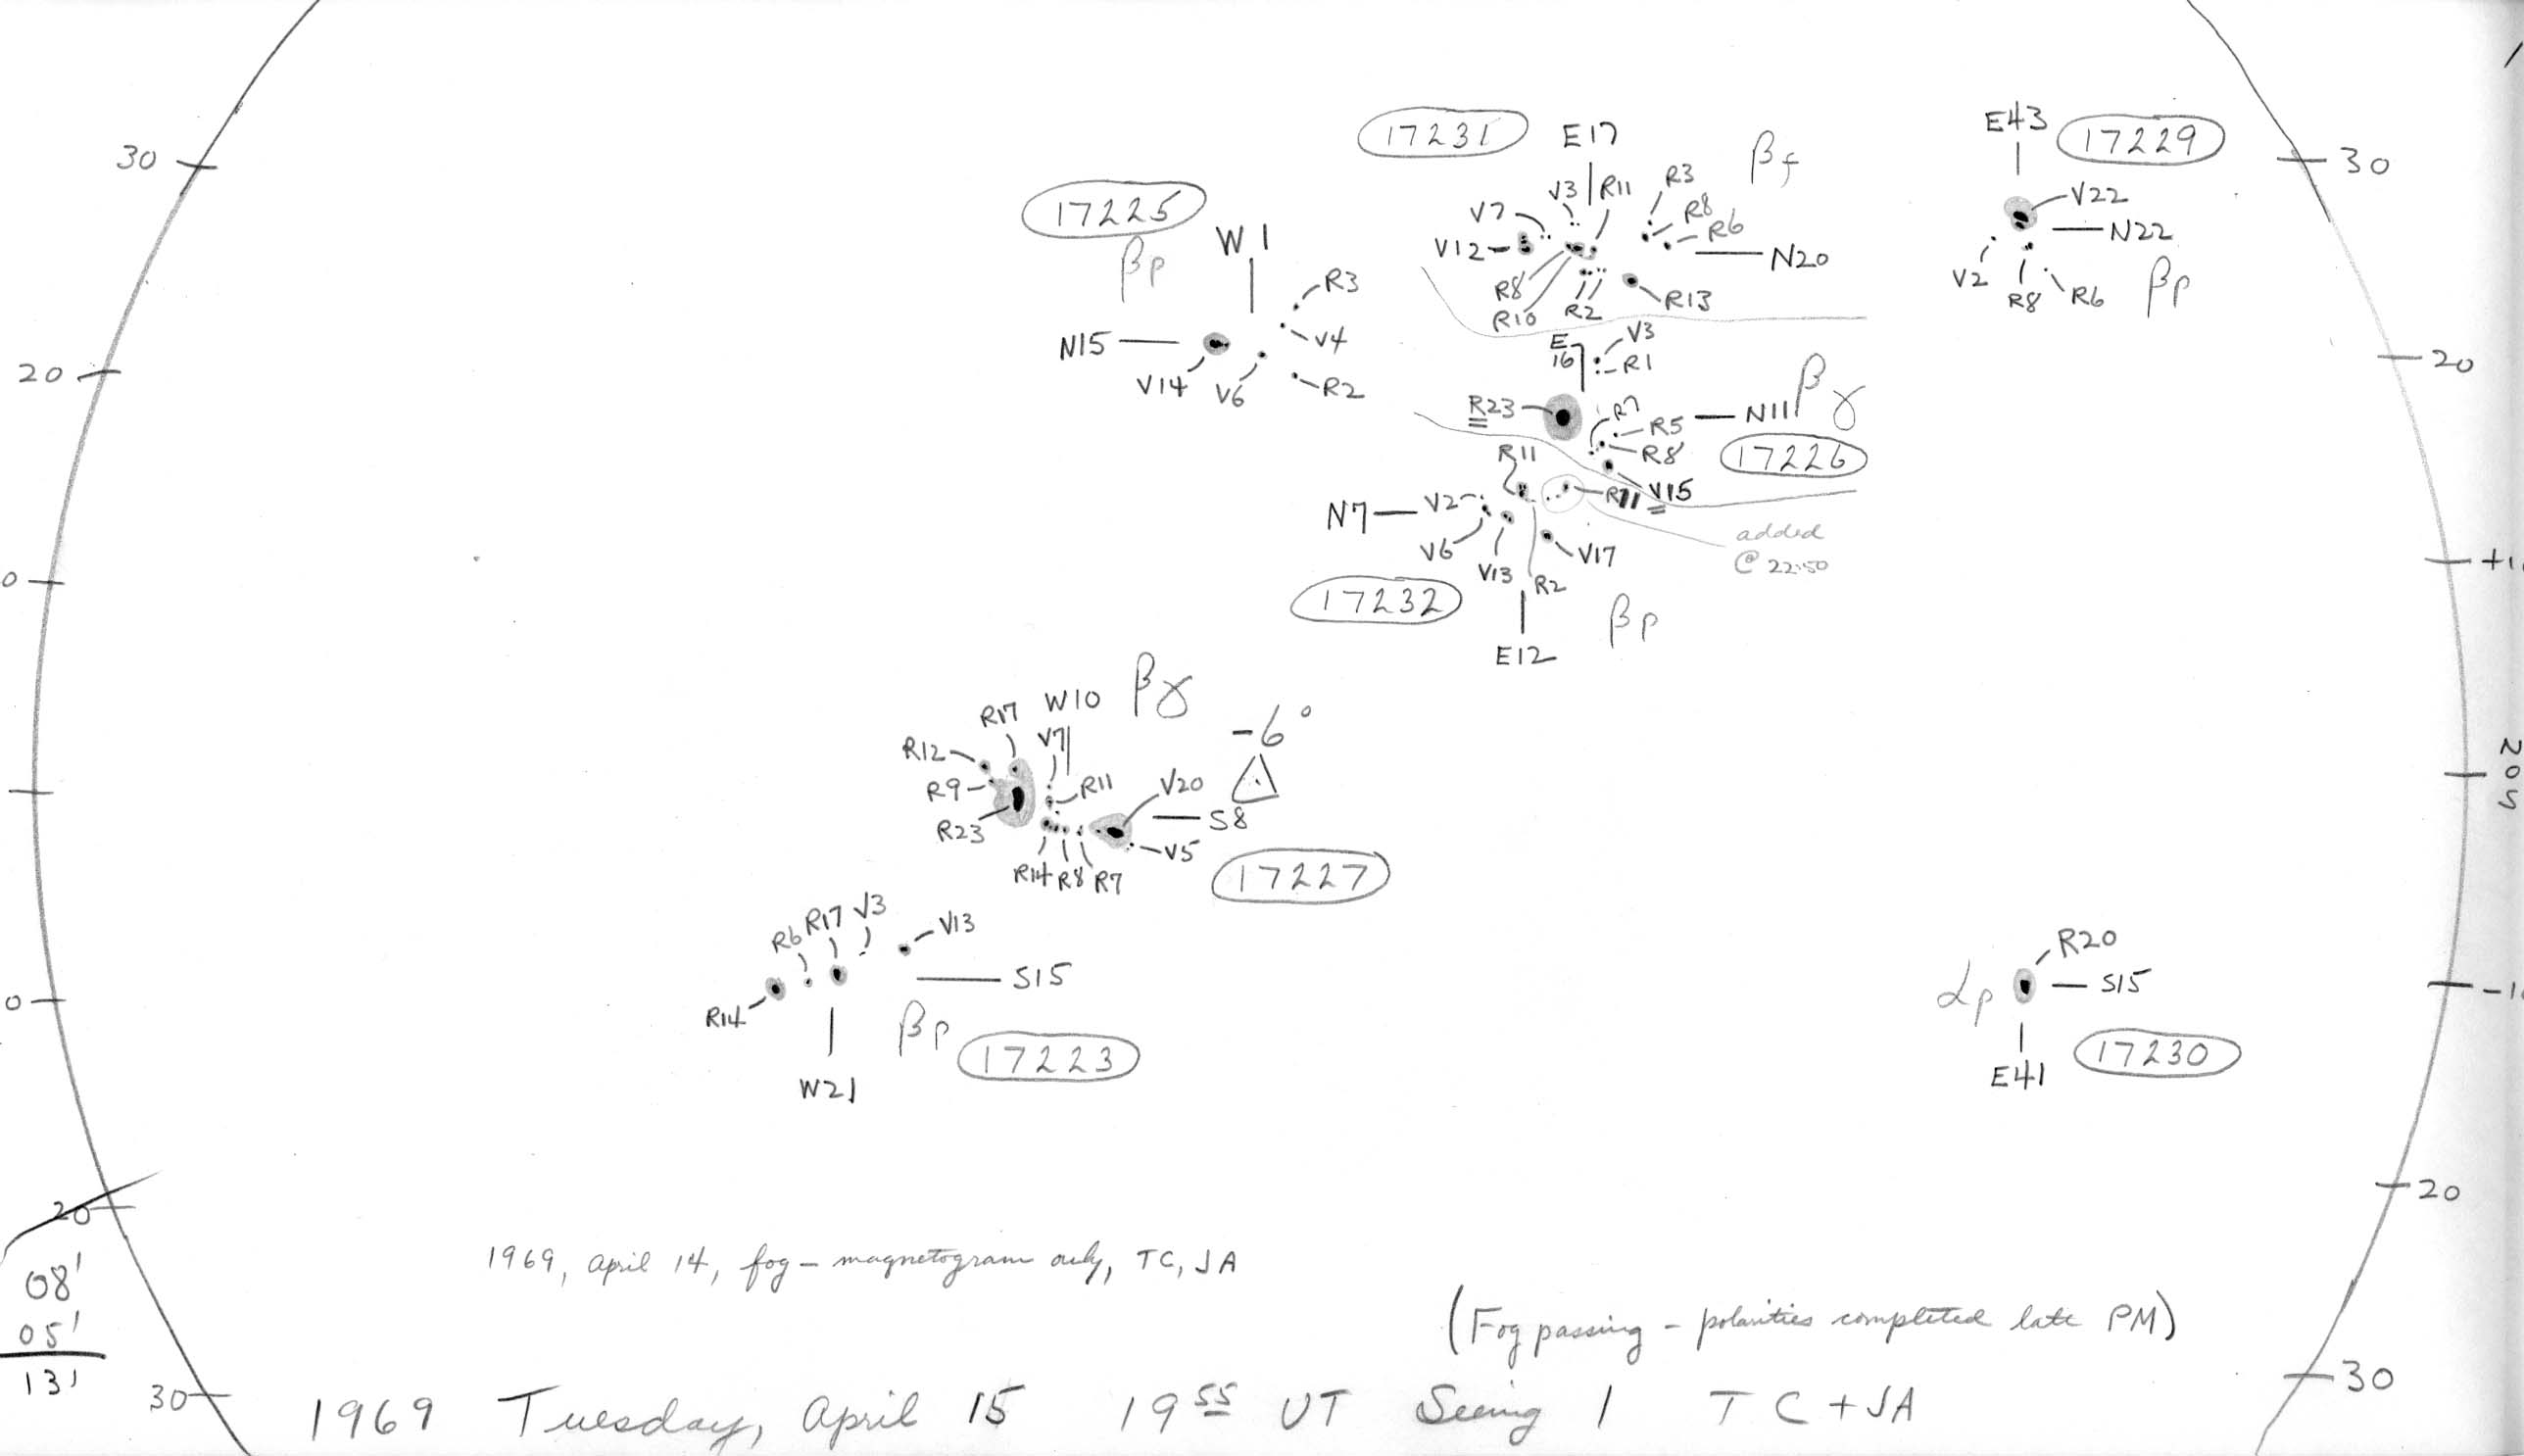 30
20
0
0
20
30
08'
05'
13'
17225
βp
W1
N15
R3
V4
V14
V6
R2
17231
E17
βf
V3
R11
R3
V7
R8
V12
R6
N20
R8
R10
R2
R13
E43
17229
V22
N22
V2
R8
R6
βp
E
16
V3
R1
βγ
R23
R7
R5
N11
R8
17226
R11
V15
R11
N7
V2
V6
V13
R2
V17
added
@ 22:50
17232
βp
E12
W10
βγ
R17
V7
-6°
R12
R9
R11
V20
S8
R23
V5
R14
R8
R7
17227
R6
R17
V3
V13
S15
R14
βp
17223
W21
R20
αp
S15
E41
17230
30
20
+1
20S
-1
20
30
1969, April 14, fog – magnetogram only, TC, JA
(Fog passing – polarities completed late PM)
1969 Tuesday, April 15 19 55 UT Seeing 1 TC + JA